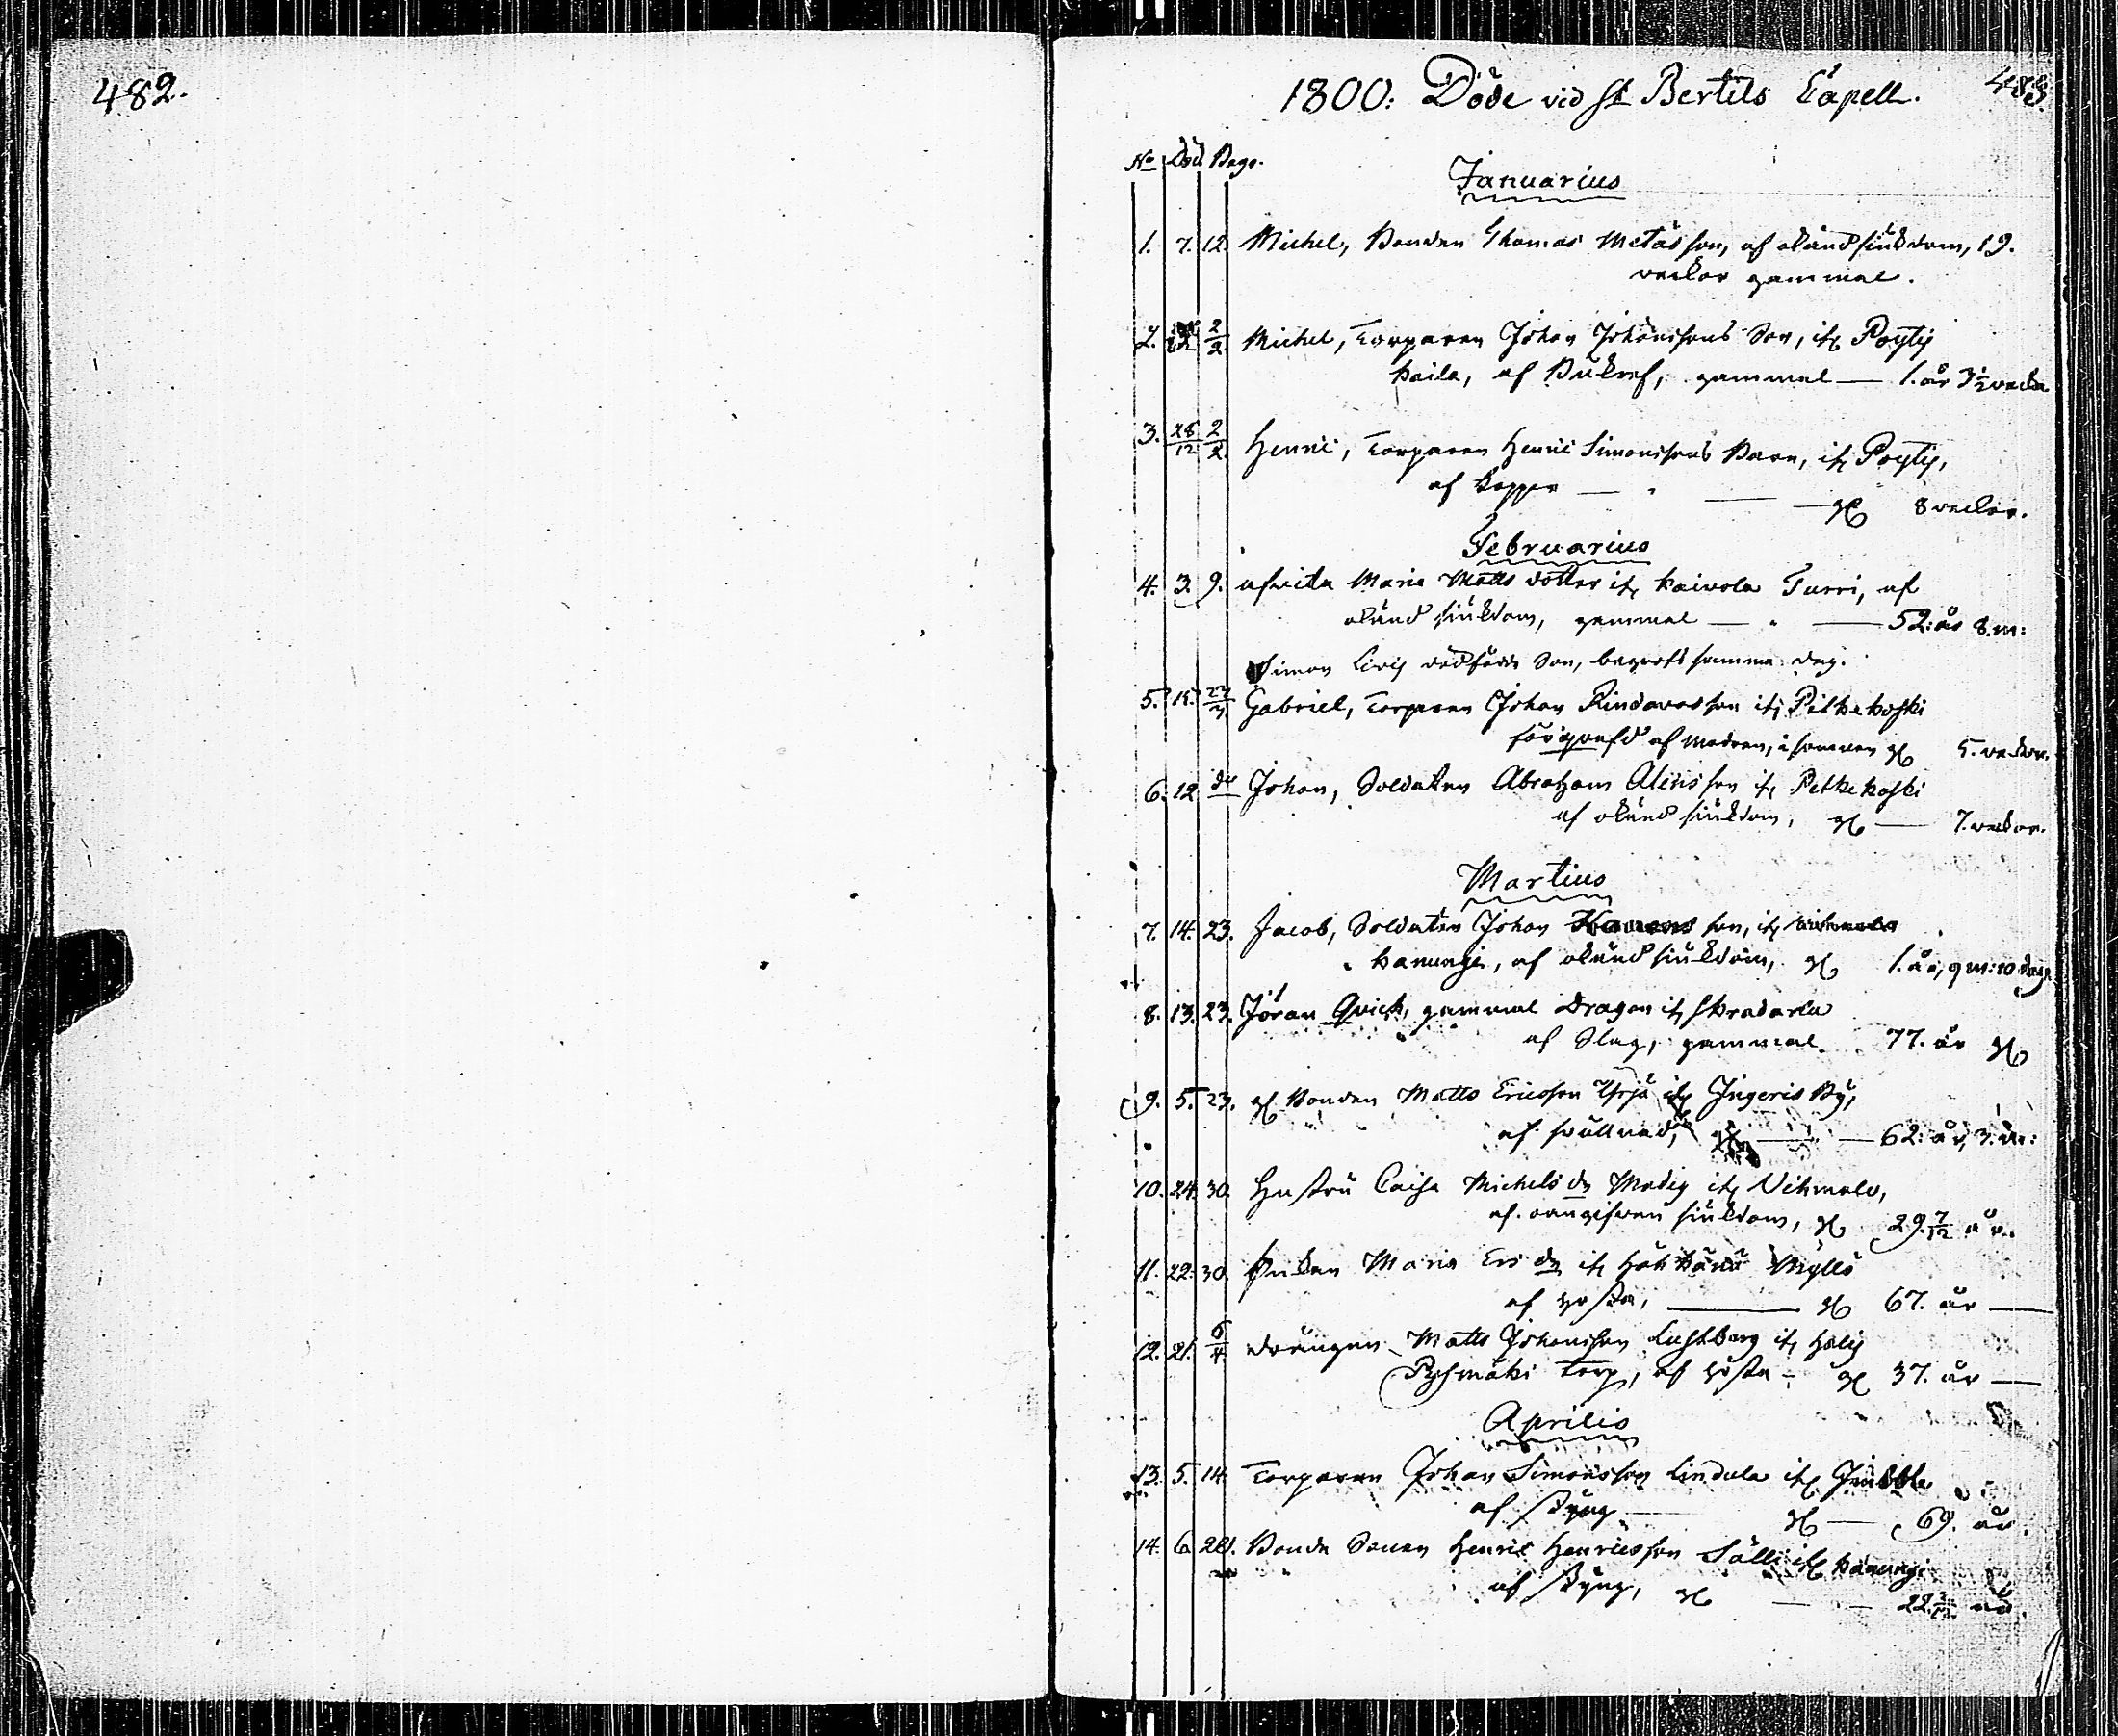 482.
1800: Döde vid St Bertils Capell. 483.
No Död Begr.
Januarius
1. 7. 12. Michel, Bonden Thomas Matts son, af okänd siukdom, 19.
veckor gammal.
2. 2/2 Michel, Torparen Johan Johanssons Son, ifr Pöytis
Kaila, af Bukref, gammal — 1. år 3 1/2 vecka
3. 28/12 2/2 Henric, Torparen Henric Simonssons Barn, ifr Pöytis,
af Koppor — gl 8 veckor.
Februarius
4. 3. 9. Maria Matts dotter ifr Kaivola Turri, af
okänd siukdom, gammal — 52: år 8. m:
Simon dödfödde Son, begrofs samma dag.
5. 15. Gabriel, Torparen Johan Rindaros son ifr Pitkekoski
förqvafd af modren, i sömnen gl 5. veckor.
6. 12 do Johan, Soldaten Abraham son ifr Pitkekoski
af okänd siukdom, gl — 7. veckor.
Martius
7. 14. 23. Jacob, Soldaten Johan son, ifr
Kanungi, af okänd siukdom, gl 1. år, 9 m: 10 dag.
8. 13. 23. Jöran Qvick, gammal Dragon ifr Skradarla
af Slag, gammal 77. år gl
9. 5. 23. gl Bonden Matts Ericsson Yrjä ifr Ingeris By,
af svullnad, — 62: år, 3. m:
10. 24. 30. Hustru Caisa Michels dr Madig ifr Vihmalo,
af oangifven siukdom, gl 29. 7/12 år.
11. 22. 30. Enkan Maria Ers dr ifr Myllö
af hosta, — gl 67. år —
12. 21. 6/4 Drängen Matts Johansson Lustberg ifr
Pyhmäki torp, af hosta - gl 37. år —
Aprilis
13. 5. 14. Torparen Johan Simonsson Lindula ifr
af styng — gl — 69. år.
14. 6. Bonde Sonen Henric Henricsson Sälli ifr Kanungi
af styng, gl — 22. år.